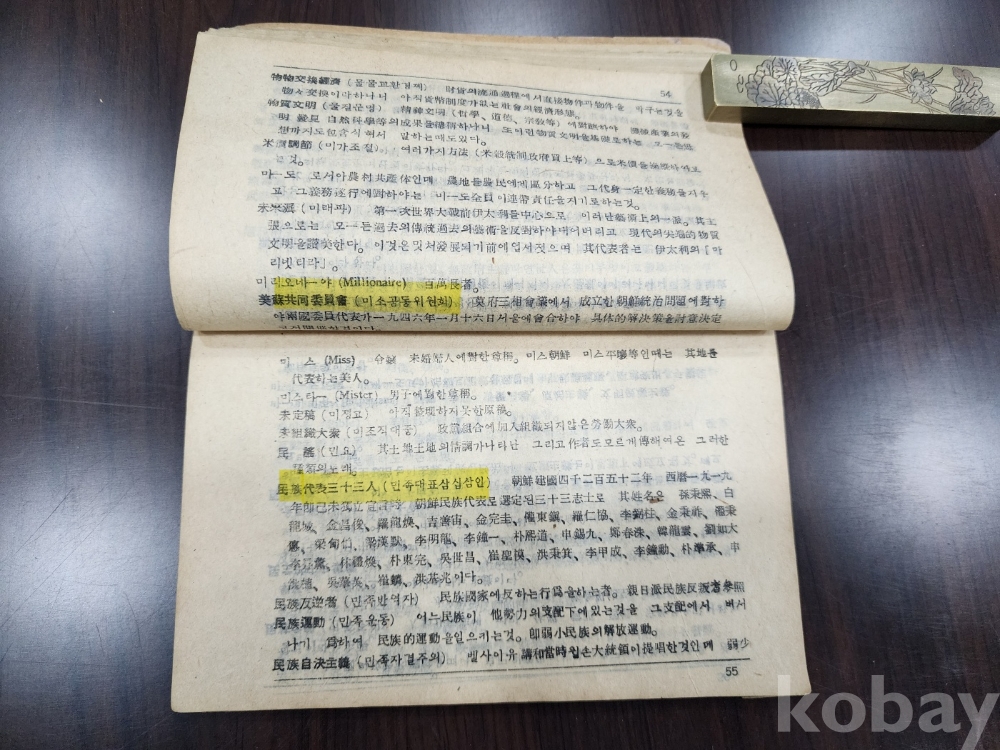 54
物物交換經濟 (물물교환경제) 財貨의流通過程에서直接物件과物件을 바구는것을
物々交換이라하나니 아직貨幣制度가없는社會의經濟形態。
物質文明 (물질문명) 精神文明 (哲學、道德、宗敎等) 에對하야
明 發見 自然科學等의成果을 하나니 또이런物質文明을基礎로하는 모ー든思
想까지도包含식혀서 말하는때도있다。
米價調節 (미가조절) 여러가지方法 (米穀統制政府買上等) 으로米價를
는것。
마ー도 로서아農村共産体인데 農地를農民에게區分하고 그代身一定한義務를지우
고 그義務遂行에對하야는 미ー도全員이連帶責任을지기로하는것。
未來派 (미래파) 第一次世界大戰前伊太利를中心으로 이러난藝術上의一派。其主
張으로는 모ー든過去의傳統過去의藝術을反對하야내어버리고 現代의尖端的物質
文明을讚美한다。이것은및처發展되기前에업서젓으며 其代表者는 伊太利의「마
리넷티라」。
미리오네ー야 (Millionaire) 百萬長者。
美蘇共同委員會 (미소공동위원회) 莫府三相會議에서 成立한朝鮮統治問題에對하
야兩國委員代表가一九四六年一月十六日서울에會合하야 具体的解決策을討意決定
미 스 (Miss) 令孃 未婚婦人에對한尊稱。미스朝鮮 미스平壤等인때는 其地를
代表하는美人。
미스타ー (Mister) 男子에對한尊稱。
未定稿 (미정고) 아직整理하지못한原稿。
未組織大衆 (미조직대중) 政黨組合에加入組織되지않은勞働大衆。
民 謠 (민요) 其土地土地의情調가나타난 그리고作者도모르게傳해여온 그러한
種類의노래。
民族代表三十三人 (민족대표삼십삼인) 朝鮮建國四千二百五十二年 西曆一九一九
年節己未獨立宣言時 朝鮮民族代表로選定된三十三志士로 其姓名은 孫秉熙、白
龍城、金昌俊、羅龍煥、吉善宙、金完圭、權東鎭、羅仁協、李錫柱、金秉祚、權秉
悳、梁甸伯、梁漢默、李明龍、李鐘一、朴熙道、申錫九、鄭春洙、韓龍雲、劉如大
李昇薰、林禮煥、朴東完、吳世昌、崔聖模、洪秉箕、李甲成、李鐘勳、朴準承、申
洪植、吳華英、崔麟、洪基兆이다。
民族反逆者 (민족반역자) 民族國家에反하는行爲을하는者。親日派民族反叛者參照
民族運動 (민족운동) 어느民族이 他勢力의支配下에있는것을 그支配에서 버서
나기 爲하여 民族的運動을일으키는것。卽弱小民族의解放運動。
民族自決主義 (민족자결주의) 벨사이유 講和當時윌손大統領이提唱한것인데 弱少
55
kobay